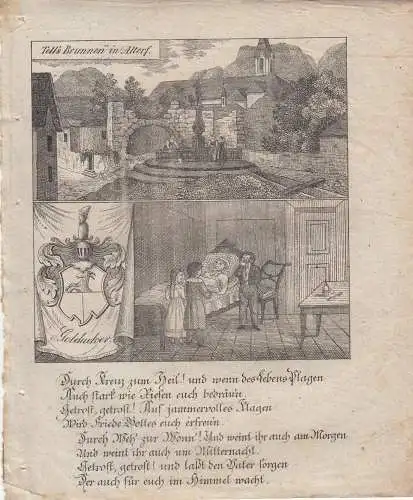 Tells Brunnen in Altorf.
Goldacher.
Durch Kreuz zum Heil! und wenn des Lebens Plagen
Auch stark wie Riesen euch bedräun.
Getrost, getrost! Auf jammervolles Klagen
Wird Friede Gottes euch erfreun.
Durch Weh' zur Wonn'! Und weint ihr auch am Morgen
Und weint ihr auch um Mitternacht.
Getrost, getrost! und laßt den Vater sorgen
Der auch für euch im Himmel wacht.